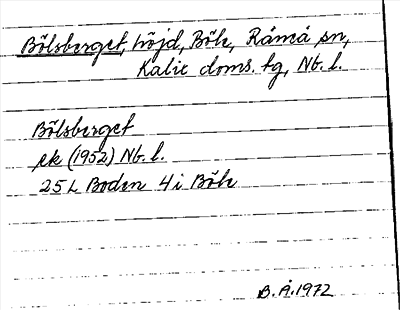 Bölsberget, höjd, Böle, Råneå sn,
Kalix doms. tg, Nb. l.
Bölsberget
ek (1952) Nb. l.
25 L Boden 4 i Böle
B. Å. 1972